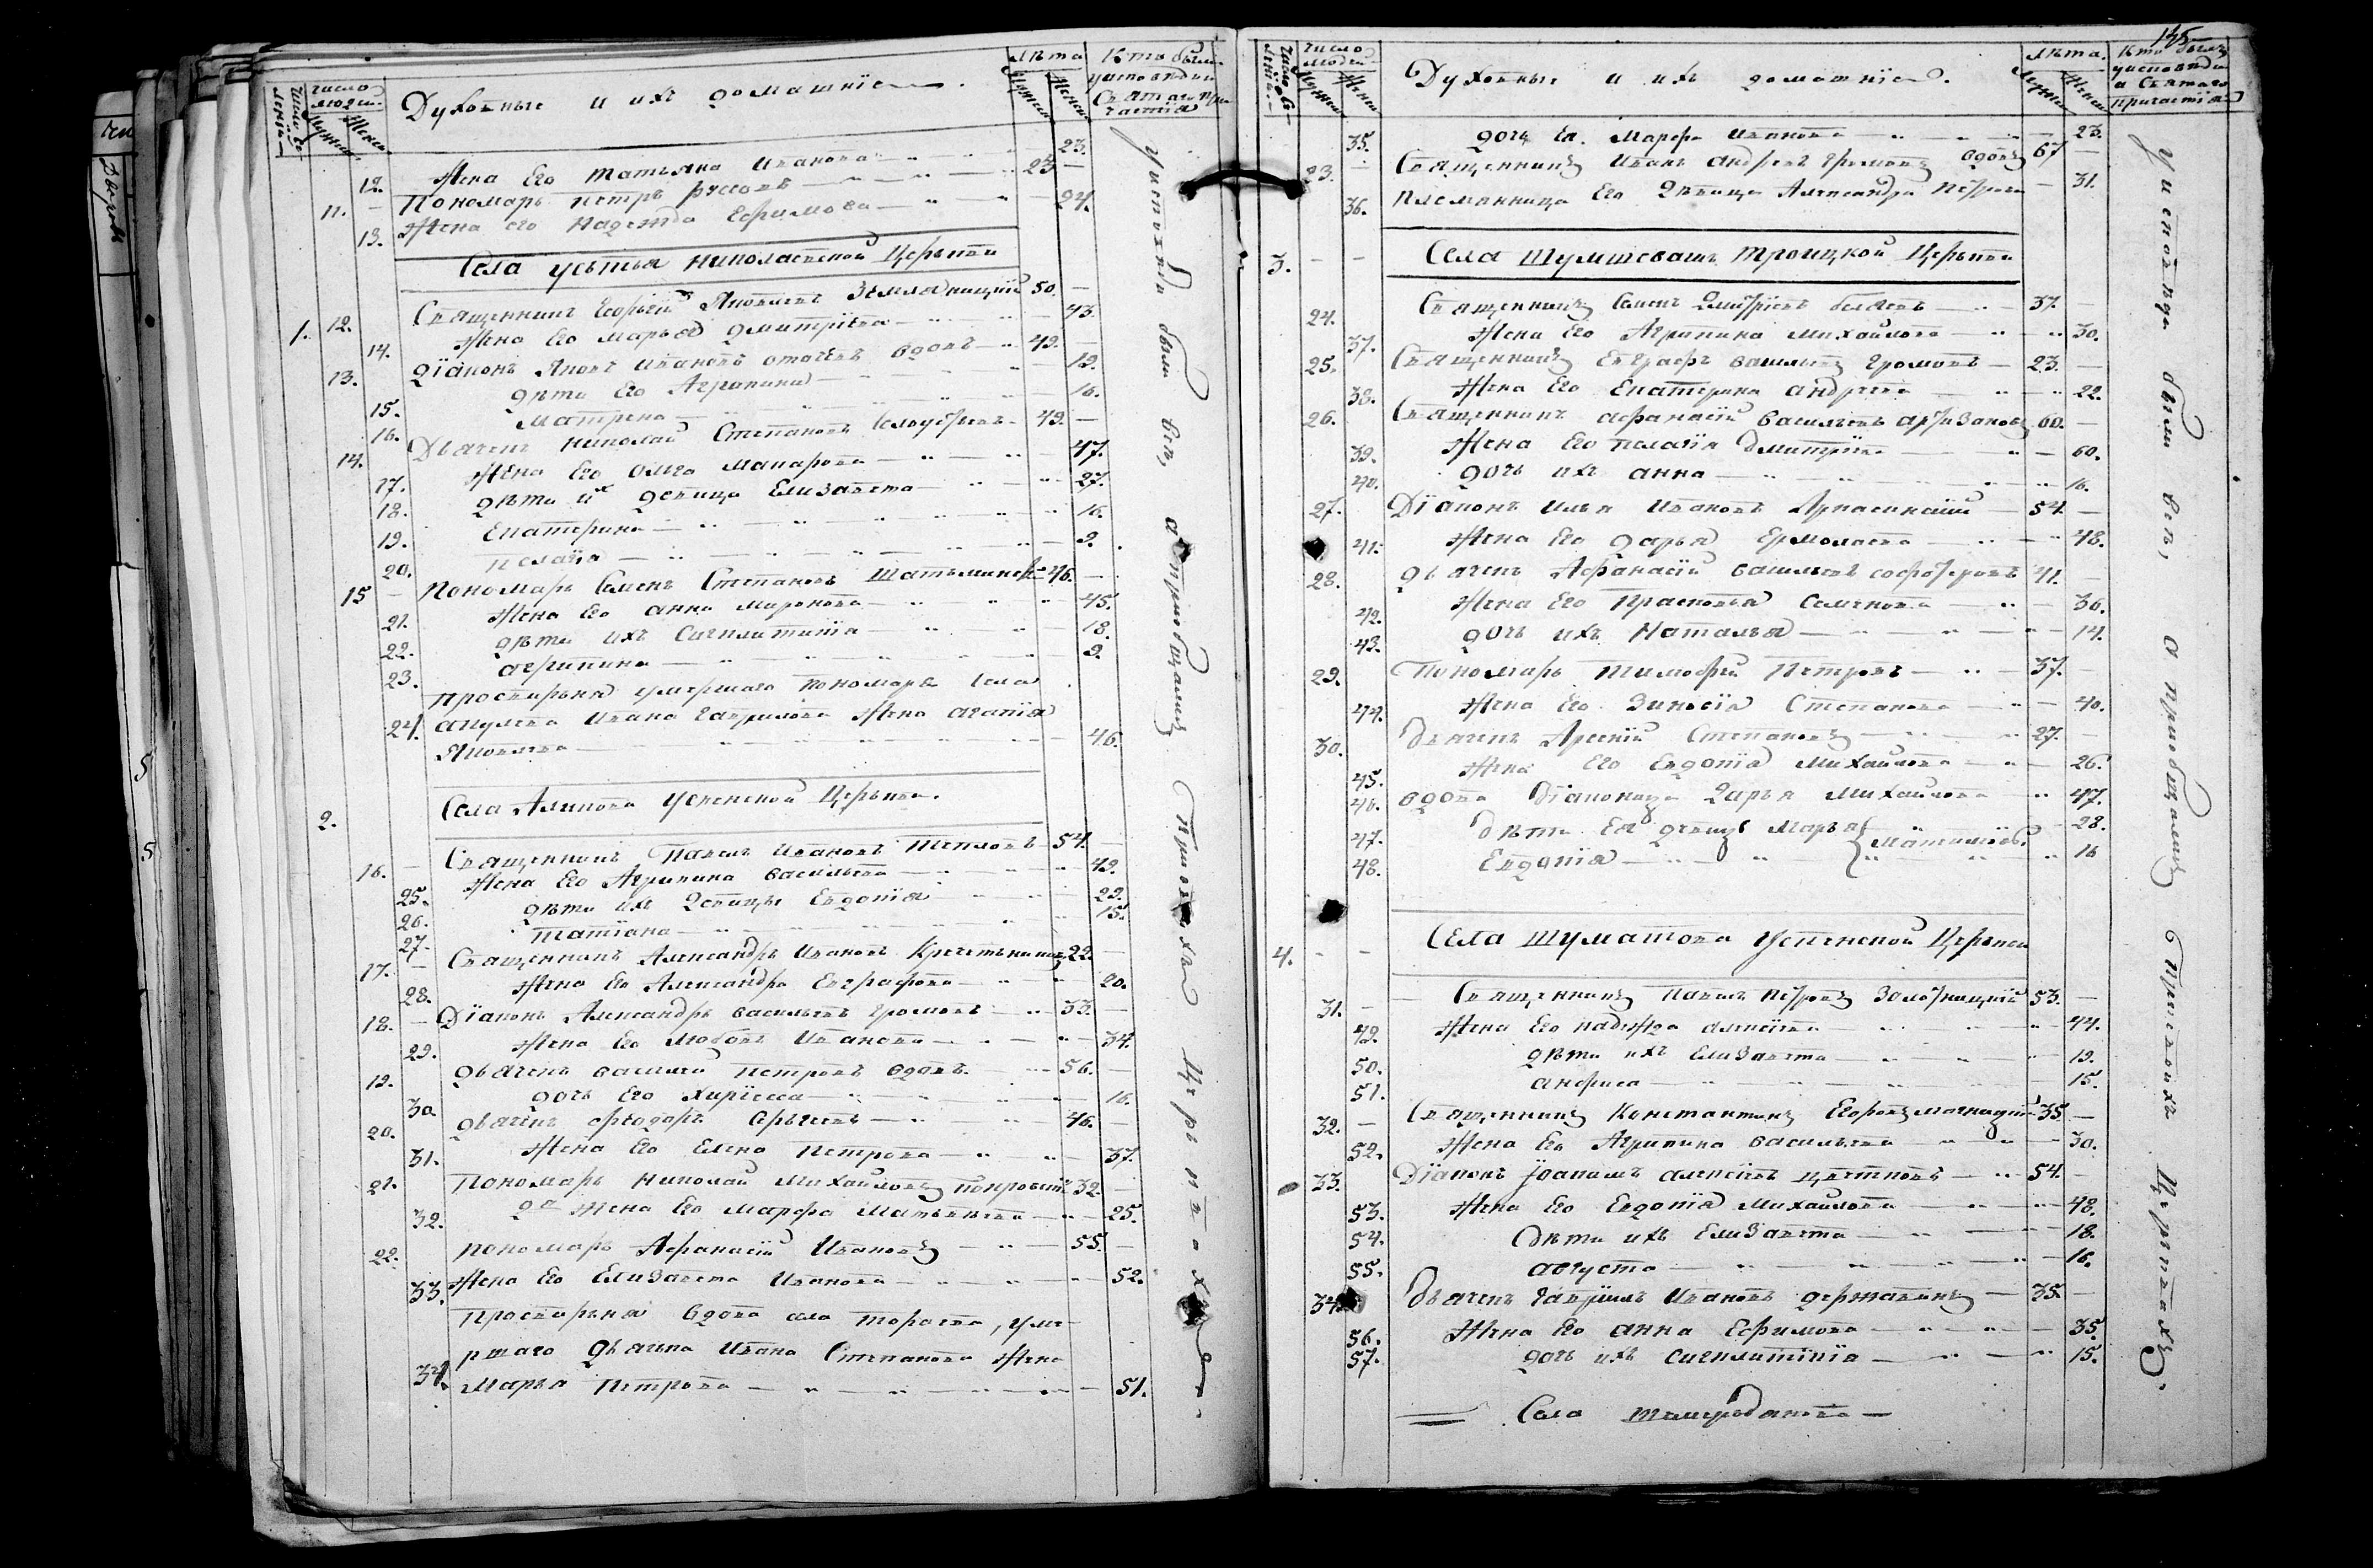 число людей
Мужеск.
Женск.
Духовные и ихъ домашнiе.
Лѣта
Мужеск.
Женск.
Кто былъ у исповѣди и Святаго причастiя
12. Жена Его Татьяна Иванова 23.
11. Пономарь Петръ 23
13. Жена его Надежда Ефимова 24.
Села Устья Николаевской Церькви
1. 12. Священникъ Георгiй Яковлевъ Земляницкiй 50.
14. Жена Его Марья Дмитрiева 43.
13. Дiаконъ Яковъ Ивановъ вдовъ 49.
15. дѣти Его Агрипина 19.
16. Матрена 16.
14. Дьячекъ Николай Степановъ 49.
17. Жена Его Ольга Макарова 47.
18. дѣти их девица Елизавета 27.
19. Екатерина 16.
20. Пелагiя 9.
15 Пономарь Семенъ Степановъ 46.
21. Жена Его Анна Миронова 45.
22. дѣти ихъ Сигклитикiя 18.
23. Агрипина 9.
Просвирьня умершаго Пономаря Села
24. Акулева Ивана Гаврилова Жена Агапiя
Яковлева 46.
2. Села Аликова Успенской Церькви.
16. Священникъ Павелъ Ивановъ Тепловъ 54.
25. Жена Его Агрипина Васильева 49.
26. дѣти ихъ Девицы Евдокiя 22.
27. Татiана 15.
17. Священникъ Александръ Ивановъ 22.
28. Жена Его Александра Евграфова 20.
18. Дiаконъ Александръ Васильевъ Громовъ 33.
29. Жена Его Любовь Иванова 34.
19. Дьячекъ Василiй Петровъ вдовъ. 56.
30. дочь Его Хирiесса 16.
20. Дьячекъ Феодоръ Сергѣевъ 46.
31. Жена Его Елена Петрова 37.
21. Пономарь Николай Михайловъ Покровскiй 32.
32. 2я Жена Его Марфа Матвѣева 25.
22. Пономарь Афанасiй Ивановъ 55.
33. Жена Его Елизавета Иванова 52.
Просвирьня Вдова села Тораева, уме-
ршаго Дьячка Ивана Степанова Жена
34. Марья Петрова 51.
у исповѣди были все, а прiобщались в Приходскихъ Церьквахъ
145
число людей
Мужеск.
Женск.
Духовные и ихъ домашнiе.
Лѣта.
Мужеск.
Женск.
Кто былъ у исповѣди и Святаго причастiя
35. дочь Ея Марфа Иванова 23.
23. Священникъ Иванъ Андреевъ Громовъ Вдовъ 67
36. Племянница Его Дѣвица Александра Петрова 31.
3. Села Шумшевашъ Троицкой Церькви
24. Священникъ Семенъ Дмитрiевъ 37.
37. Жена Его Агрипина Михайлова 30.
25. Священникъ Евграфъ Васильевъ Громовъ 23.
38. Жена Его Екатерина Андреева 22.
26. Священникъ Афанасiй Васильевъ 60.
39. Жена Его Пелагiя Дмитрiева 60.
40. дочь ихъ Анна 16.
27. Дiаконъ Илья Ивановъ 54.
41. Жена Его Дарья Ермолаева 48.
28. Дьячекъ Афанасiй Васильевъ 41.
42. Жена Его Прасковья Семенова 36.
43. дочь ихъ Наталья 14.
29. Пономарь Тимофей Петровъ 37.
44. Жена Его Зиновiя Степанова 40.
30. Дьячекъ Арсенiй Степановъ 27.
45. Жена Его Евдокiя Михайлова 26.
46. Вдова Дiаконица Дарья Михайлова 47.
47. дѣти Ея девицы Марья 28.
48. Евдокiя 16
4. Села Шуматова Успенской Церькви
31. Священникъ Павелъ Петровъ Золотницкiй 53.
49. Жена Его Надежда Алексiева 44.
50. дѣти ихъ Елизавета 19.
51. Анфиса 15.
32. Священникъ Константинъ Егоровъ 35
52. Жена Его Агрипина Васильева 30.
33. Дiаконъ Iоакимъ Алексiевъ Цветковъ 54.
53. Жена Его Евдокiя Михайлова 48.
54. дѣти ихъ Елизавета 18.
55. Августа 16.
34. Дьячекъ Гаврiилъ Ивановъ Державинъ 35.
56. Жена Его Анна Ефимова 35.
57. дочь ихъ Сигклитикiя 15.
Села
у исповѣди были все, а прiобщались в Приходскихъ Церьквахъ.